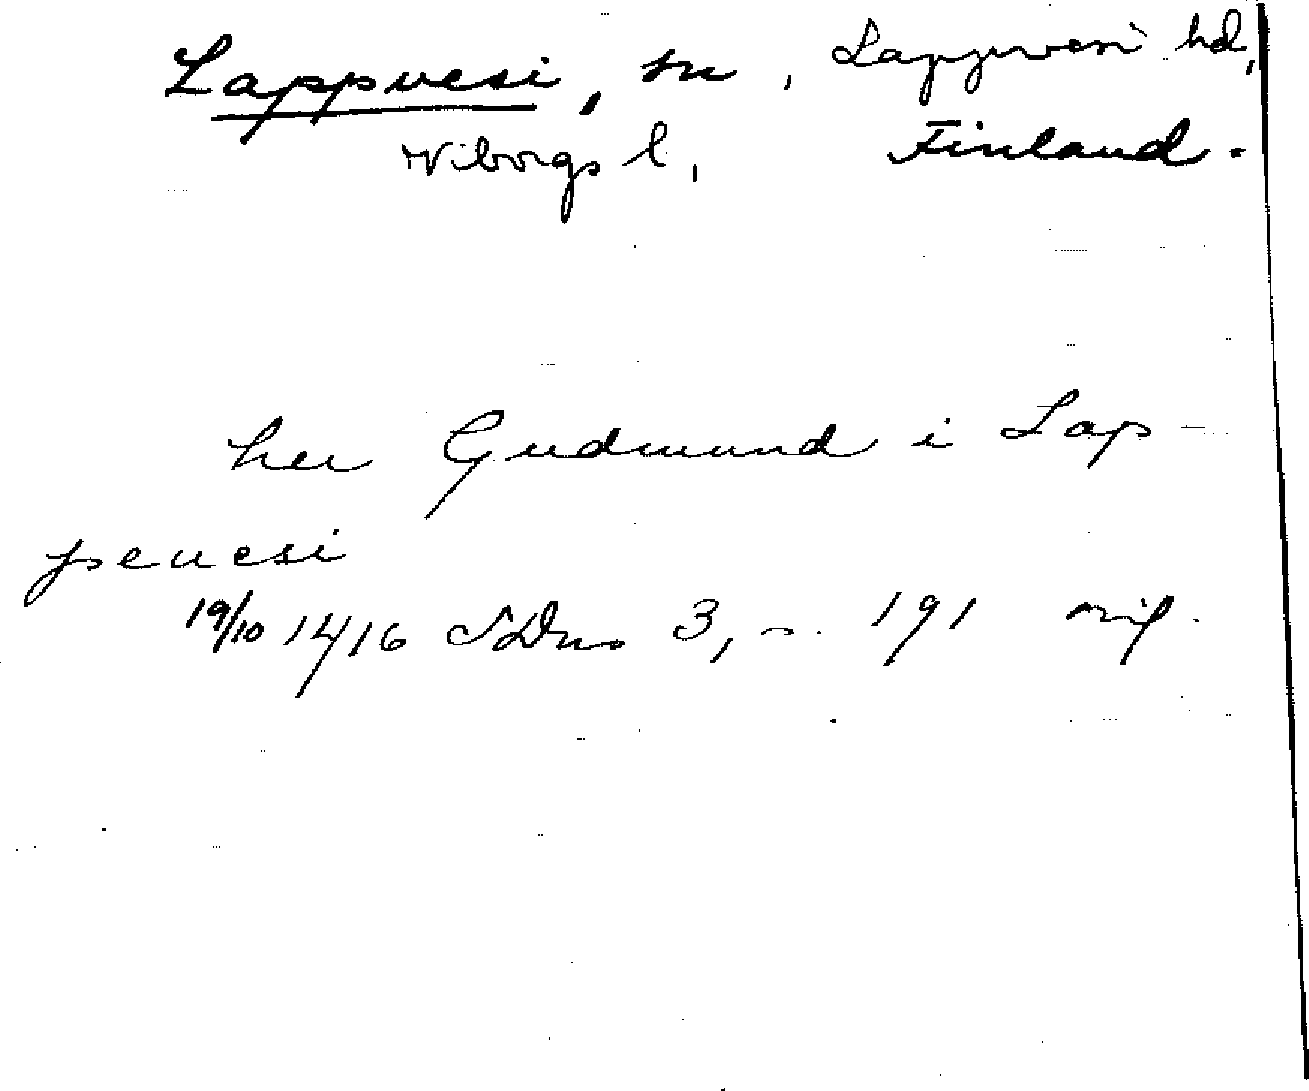 Lappvesi, sn, Lappvesi hd,
Viborgs l, Finland.
her Gudmund i Lap-
peuesi
19/10 1416 SDns 3, s. 191